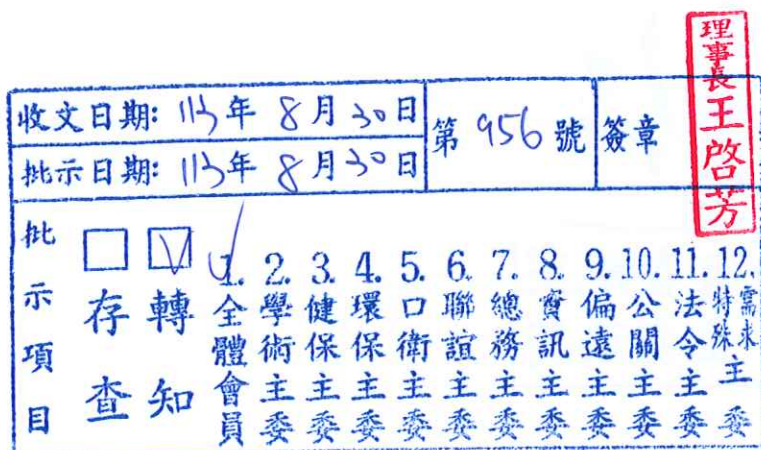 理事長王啓芳
收文日期: 113年 8月 30日
第 956 號
簽章
批示日期: 113年 8月 30日
批示項目
存查
轉知
1. 全體會員
2. 學術主委
3. 健保主委
4. 環保主委
5. 口衛主委
6. 聯誼主委
7. 總務主委
8. 資訊主委
9. 偏遠主委
10. 公關主委
11. 法令主委
12. 特殊需求主委